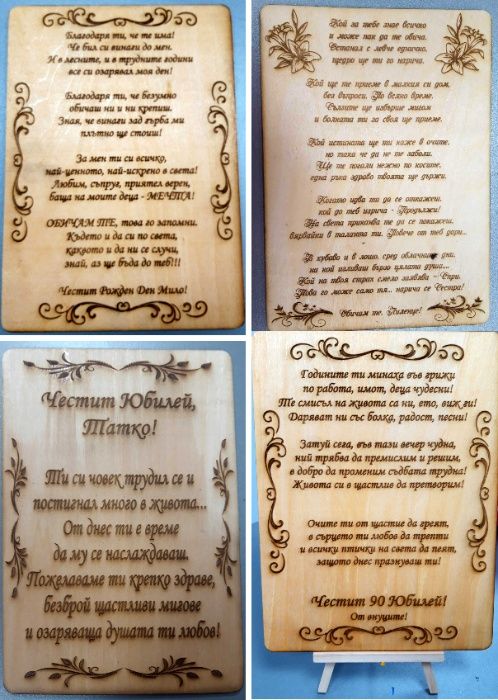 Благодаря ти, че те има!
Че бил си винаги до мен.
И в лесните, и в трудните години
все си озарявал моя ден!
Благодаря ти, че безумно
обичаш ни и ни крепиш.
Зная, че винаги зад гърба ми
плътно ще стоиш!
За мен ти си всичко,
най-ценното, най-искрено в света!
Любим, съпруг, приятел верен,
баща на моите деца - МЕЧТА!
ОБИЧАМ ТЕ, това го запомни.
Където и да си по света,
каквото и да ни се случи,
знай, аз ще бъда до теб!!!
Честит Рожден Ден Мило!
Кой за тебе знае всичко
и може пак да те обича.
Останал с левче единично,
щедро ще ти го нарича.
Кой ще те приеме в малкия си дом,
без въпроси. По всяко време.
Сълзите ще изтрие мигом
и болката ти за своя ще приеме.
Кой истината ще ти каже в очите,
но така че да не те заболи.
Ще те погали нежно по косите,
една ръка здраво твоята ще държи.
Когато идва ти да се откажеш,
кой до теб нарича - Продължи!
На света приканва те да се покажеш,
вярвайки в таланта ти. Повече от теб дори...
В хубаво и в лошо, сред облачните дни,
на кой изливаш бързо цялата душа...
Кой на твоя страх смело заявява - Спри.
Това го може само тя... нарича се Сестра!
Обичам те,
Честит Юбилей,
Татко!
Ти си човек трудил се и
постигнал много в живота...
От днес ти е време
да му се наслаждаваш.
Пожелаваме ти крепко здраве,
безброй щастливи мигове
и озаряваща душата ти любов!
Годините ти минаха във грижи
по работа, имот, деца чудесни!
Те смисъл на живота са ни, ето, виж ги!
Даряват ни със болка, радост, песни!
Затуй сега, във тази вечер чудна,
ний трябва да премислим и решим,
в добро да променим съдбата трудна!
Живота си в щастлив да претворим!
Очите ти от щастие да греят,
в сърцето ти любов да трепти
и всички птички на света да пеят,
защото днес празнуваш ти!
Честит 90 Юбилей!
От внуците!